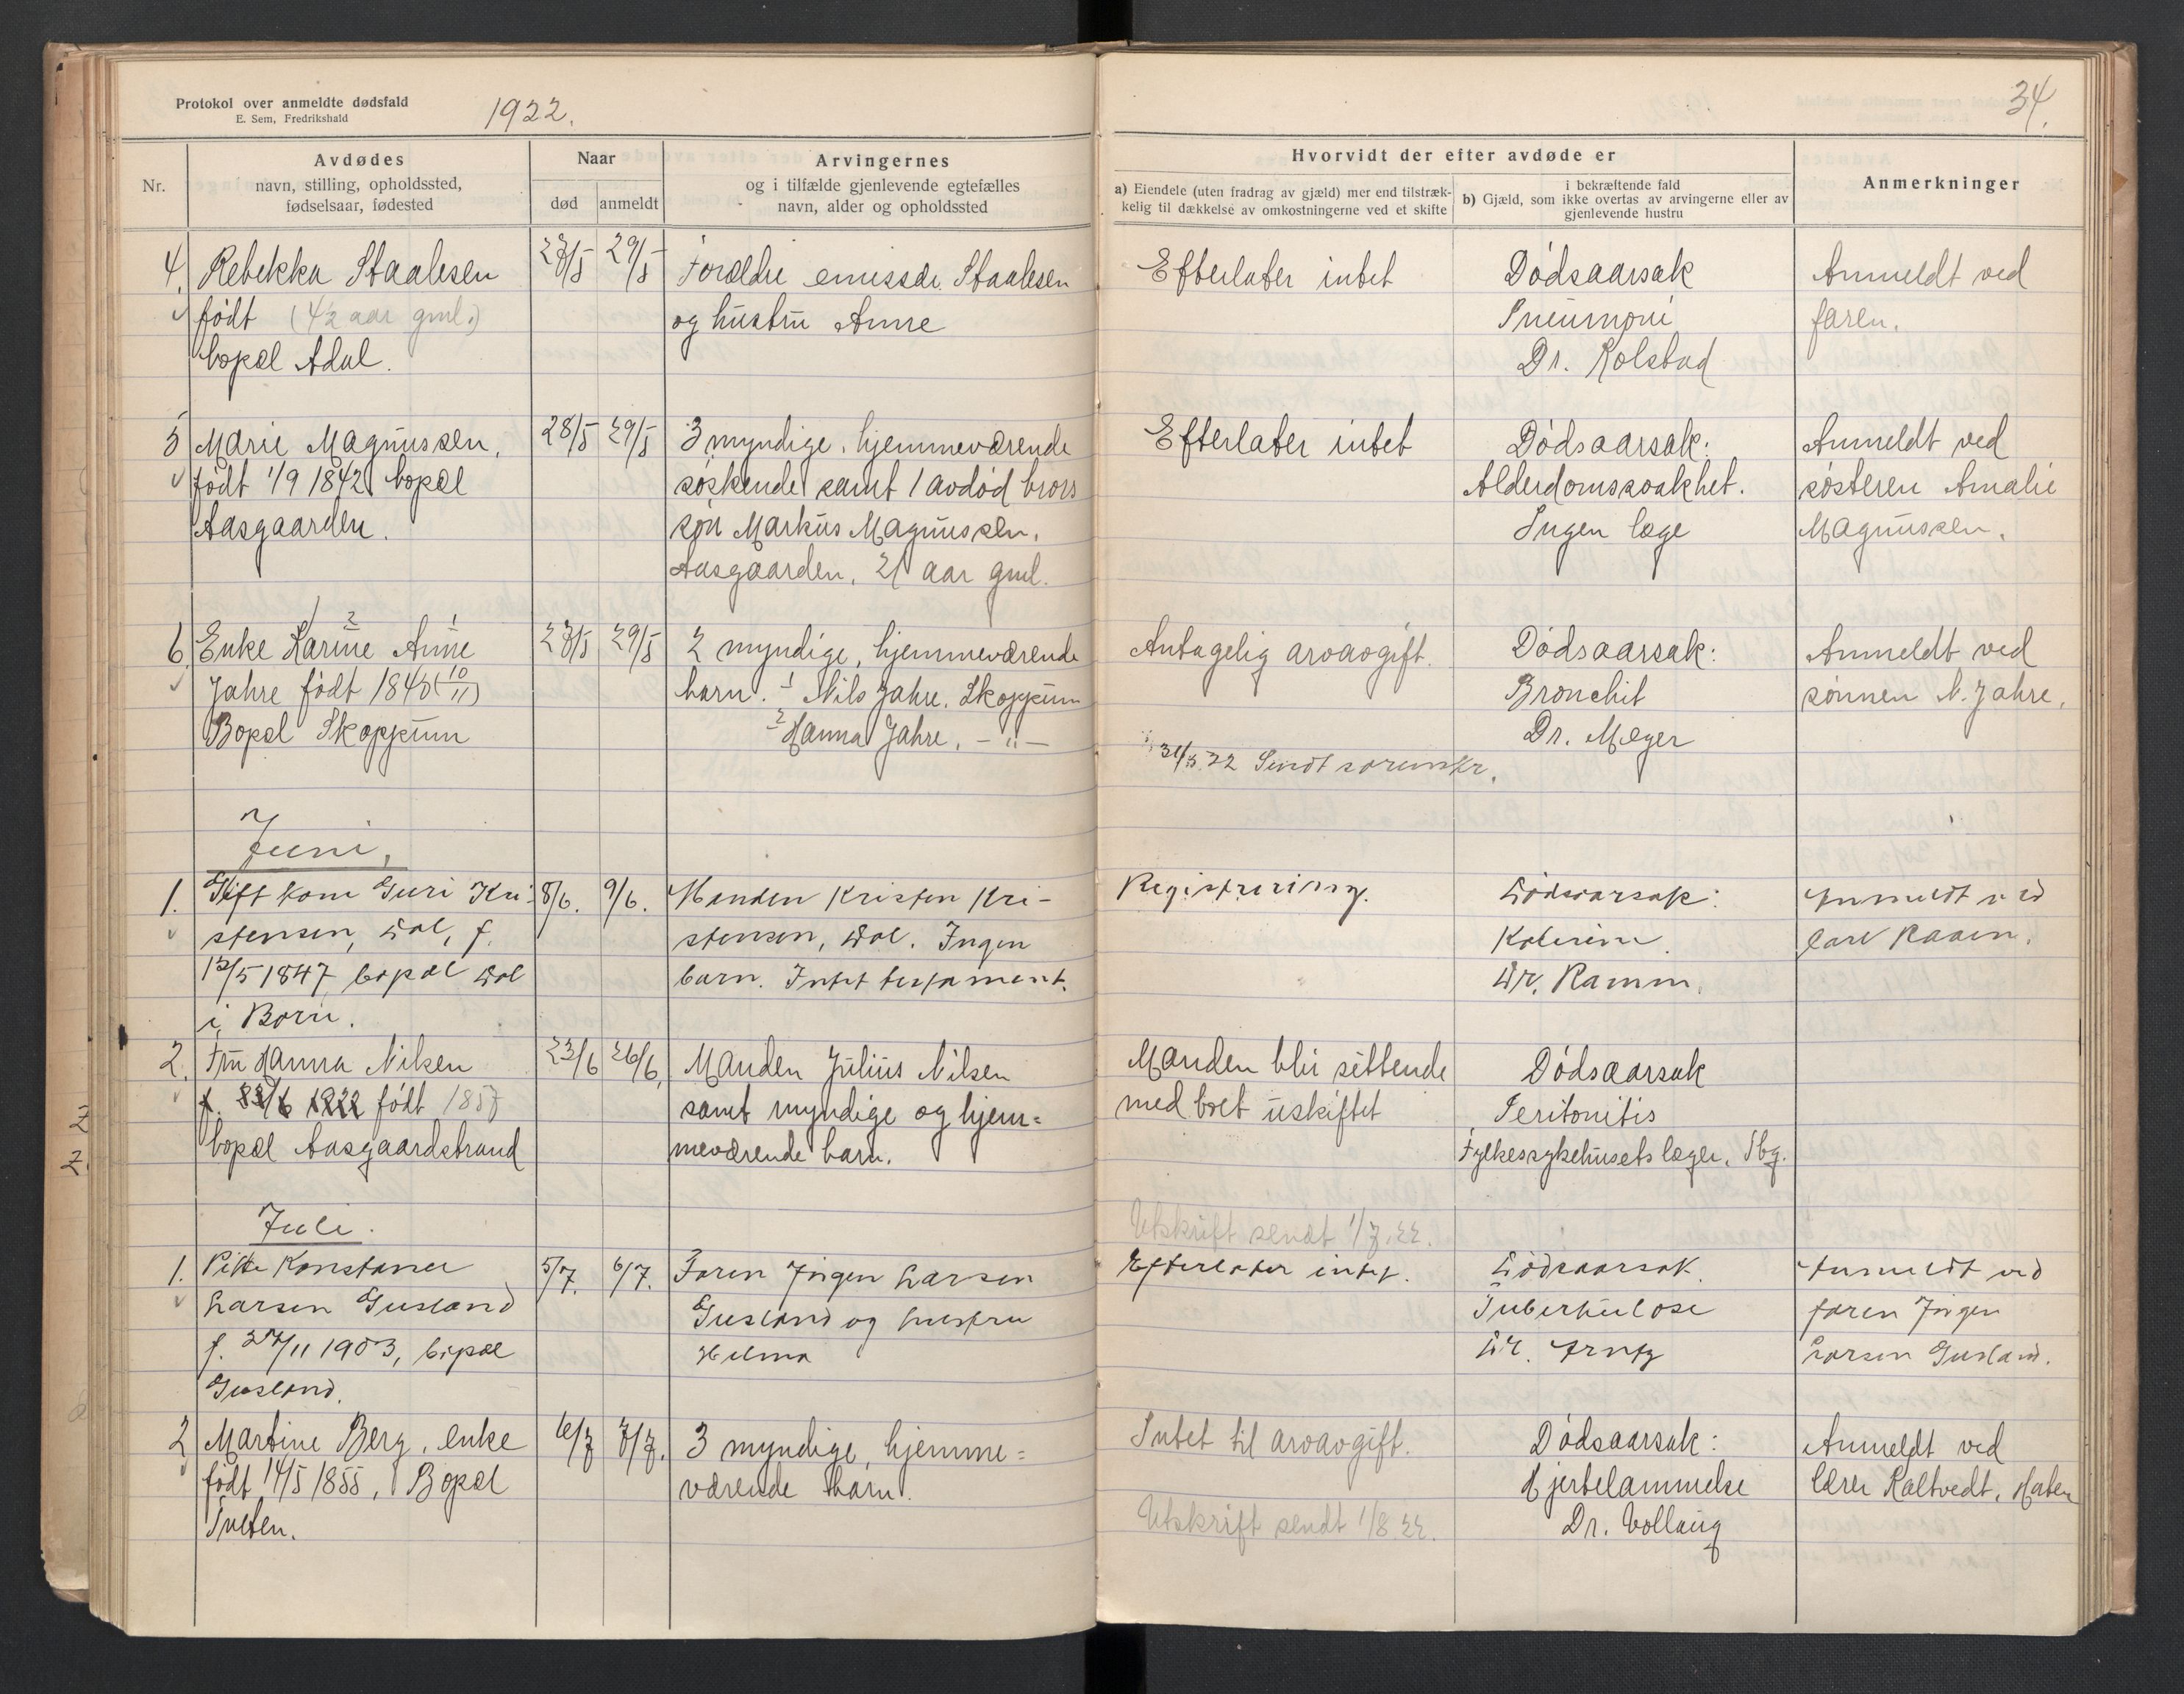 Protokol over anmeldte dødsfald
E. Sem, Fredrikshald
1922.
34.
Nr.
Avdødes
navn, stilling, opholdssted,
fødselsaar, fødested
Naar
død
anmeldt
Arvingernes
og i tilfælde gjenlevende egtefælles
navn, alder og opholdssted
Hvorvidt der efter avdøde er
a) Eiendele (uten fradrag av gjæld) mer end tilstræk-
kelig til dækkelse av omkostningerne ved et skifte
i bekræftende fald
b) Gjæld, som ikke overtas av arvingerne eller av
gjenlevende hustru
Anmerkninger
4. Rebekka Staalesen
født (4½ aar gml.)
bopæl Adal.
27/5 29/5
Forældre emissær Staalesen
og hustru Anne
Efterlater intet
Dødsaarsak
Pneumoni
Dr. Kolstad
Anmeldt ved
faren.
5 Marie Magnussen,
født 1/9 1842 bopæl
Aasgaarden.
28/5 29/5
3 myndige, hjemmeværende
søskende samt 1 avdød brors
søn Markus Magnussen,
Aasgaarden, 21 aar gml.
Efterlater intet
Dødsaarsak:
Alderdomssvakhet.
Ingen læge
Anmeldt ved
søsteren Amalie
Magnussen.
6. Enke Karine Anne
Jahre født 1840 (10/11)
Bopæl Skoppum
27/5 29/5
2 myndige, hjemmeværende
barn. 1 Nils Jahre, Skoppum
2 Hanna Jahre, - " -
Antagelig arvavgift.
31/5 22 Sendt sorenskr.
Dødsaarsak:
Bronchit
Dr. Meyer
Anmeldt ved
sønnen N. Jahre.
Juni,
1. Gift kone Guri Kri-
stensen, Dal, f.
12/5 1847 bopæl Dal
i Borre.
8/6. 9/6.
Manden Kristen Kri-
stensen, Dal. Ingen
barn. Intet testament.
Registrering.
Dødsaarsak:
Dr. Ramm.
Anmeldt ved
Carl Raaen.
2. Fru Hanna Nilsen
f. 23/6 1922 født 1857
bopæl Aasgaardstrand
23/6 26/6.
Manden Julius Nilsen
samt myndige og hjem=
meværende barn.
Manden blir sittende
med boet uskiftet
Dødsaarsak
Peritonitis
Fylkessykehusets læger, Tbg.
Juli.
Utskrift sendt 1/7.22.
1. Pitte Konstance
Larsen Gusland
f. 27/11 1903, bopæl
Gusland.
5/7. 6/7.
Faren Jørgen Larsen
Gusland og hustru
Helma
Efterlater intet.
Dødsaarsak.
Tuberkulose
Dr. Arntz
Anmeldt ved
faren Jørgen
Larsen Gusland.
2 Martine Berg, enke
født 14/5 1855, Bopæl
Tveten.
6/7 7/7.
3 myndige, hjemme=
værende barn.
Intet til arvavgift.
Utskrift sendt 1/8 22.
Dødsaarsak:
Hjertelammelse
Dr. Vollaug
Anmeldt ved
lærer Kaltvedt,
22